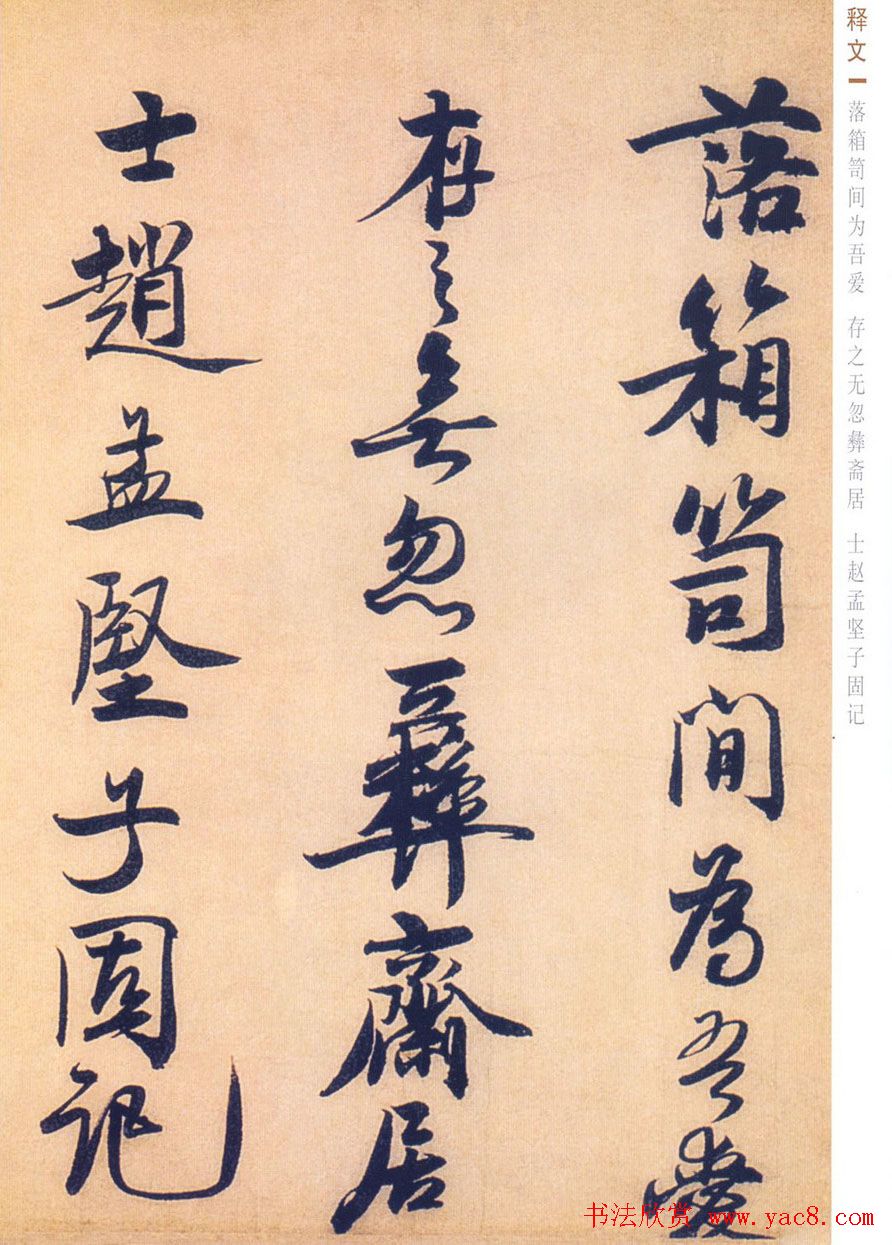 释文
落箱笥间为吾爱 存之无忽彝斋居 士赵孟坚子固记
落箱笥間為吾愛
存之無忽彝齋居
士趙孟堅子固記
书法欣赏 www.yac8.com